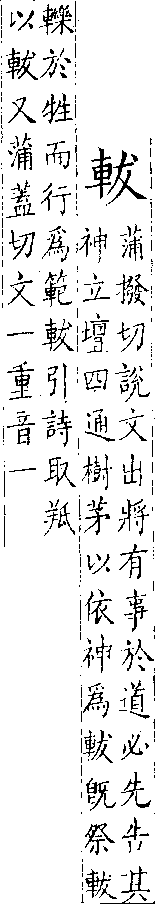 軷
蒲撥切說文出將有事於道必先告其
神立壇四通樹茅以依神爲軷旣祭軷
轢於牲而行爲範軷引詩取羝
以軷又蒲蓋切文一重音一